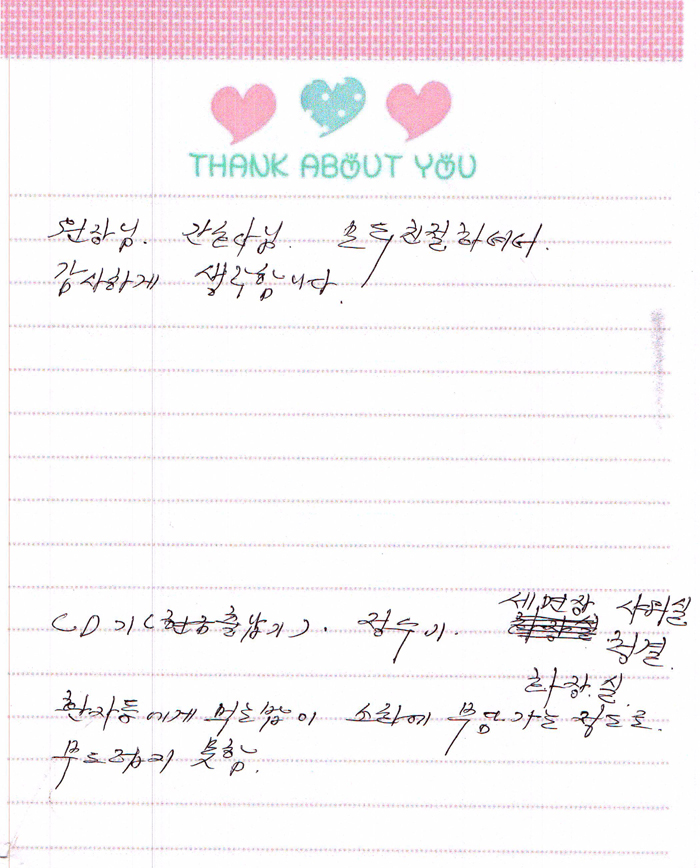 THANK ABOUT YOU
원장님. 간호사님. 모두 친절하여서.
감사하게 생각합니다.
CD기(현금출납기). 정수기. 세면장 샤워실
청결.
화장.실.
환자들에게 먹는밥이 소화에 부담가는 정도로.
부드럽지 못함.